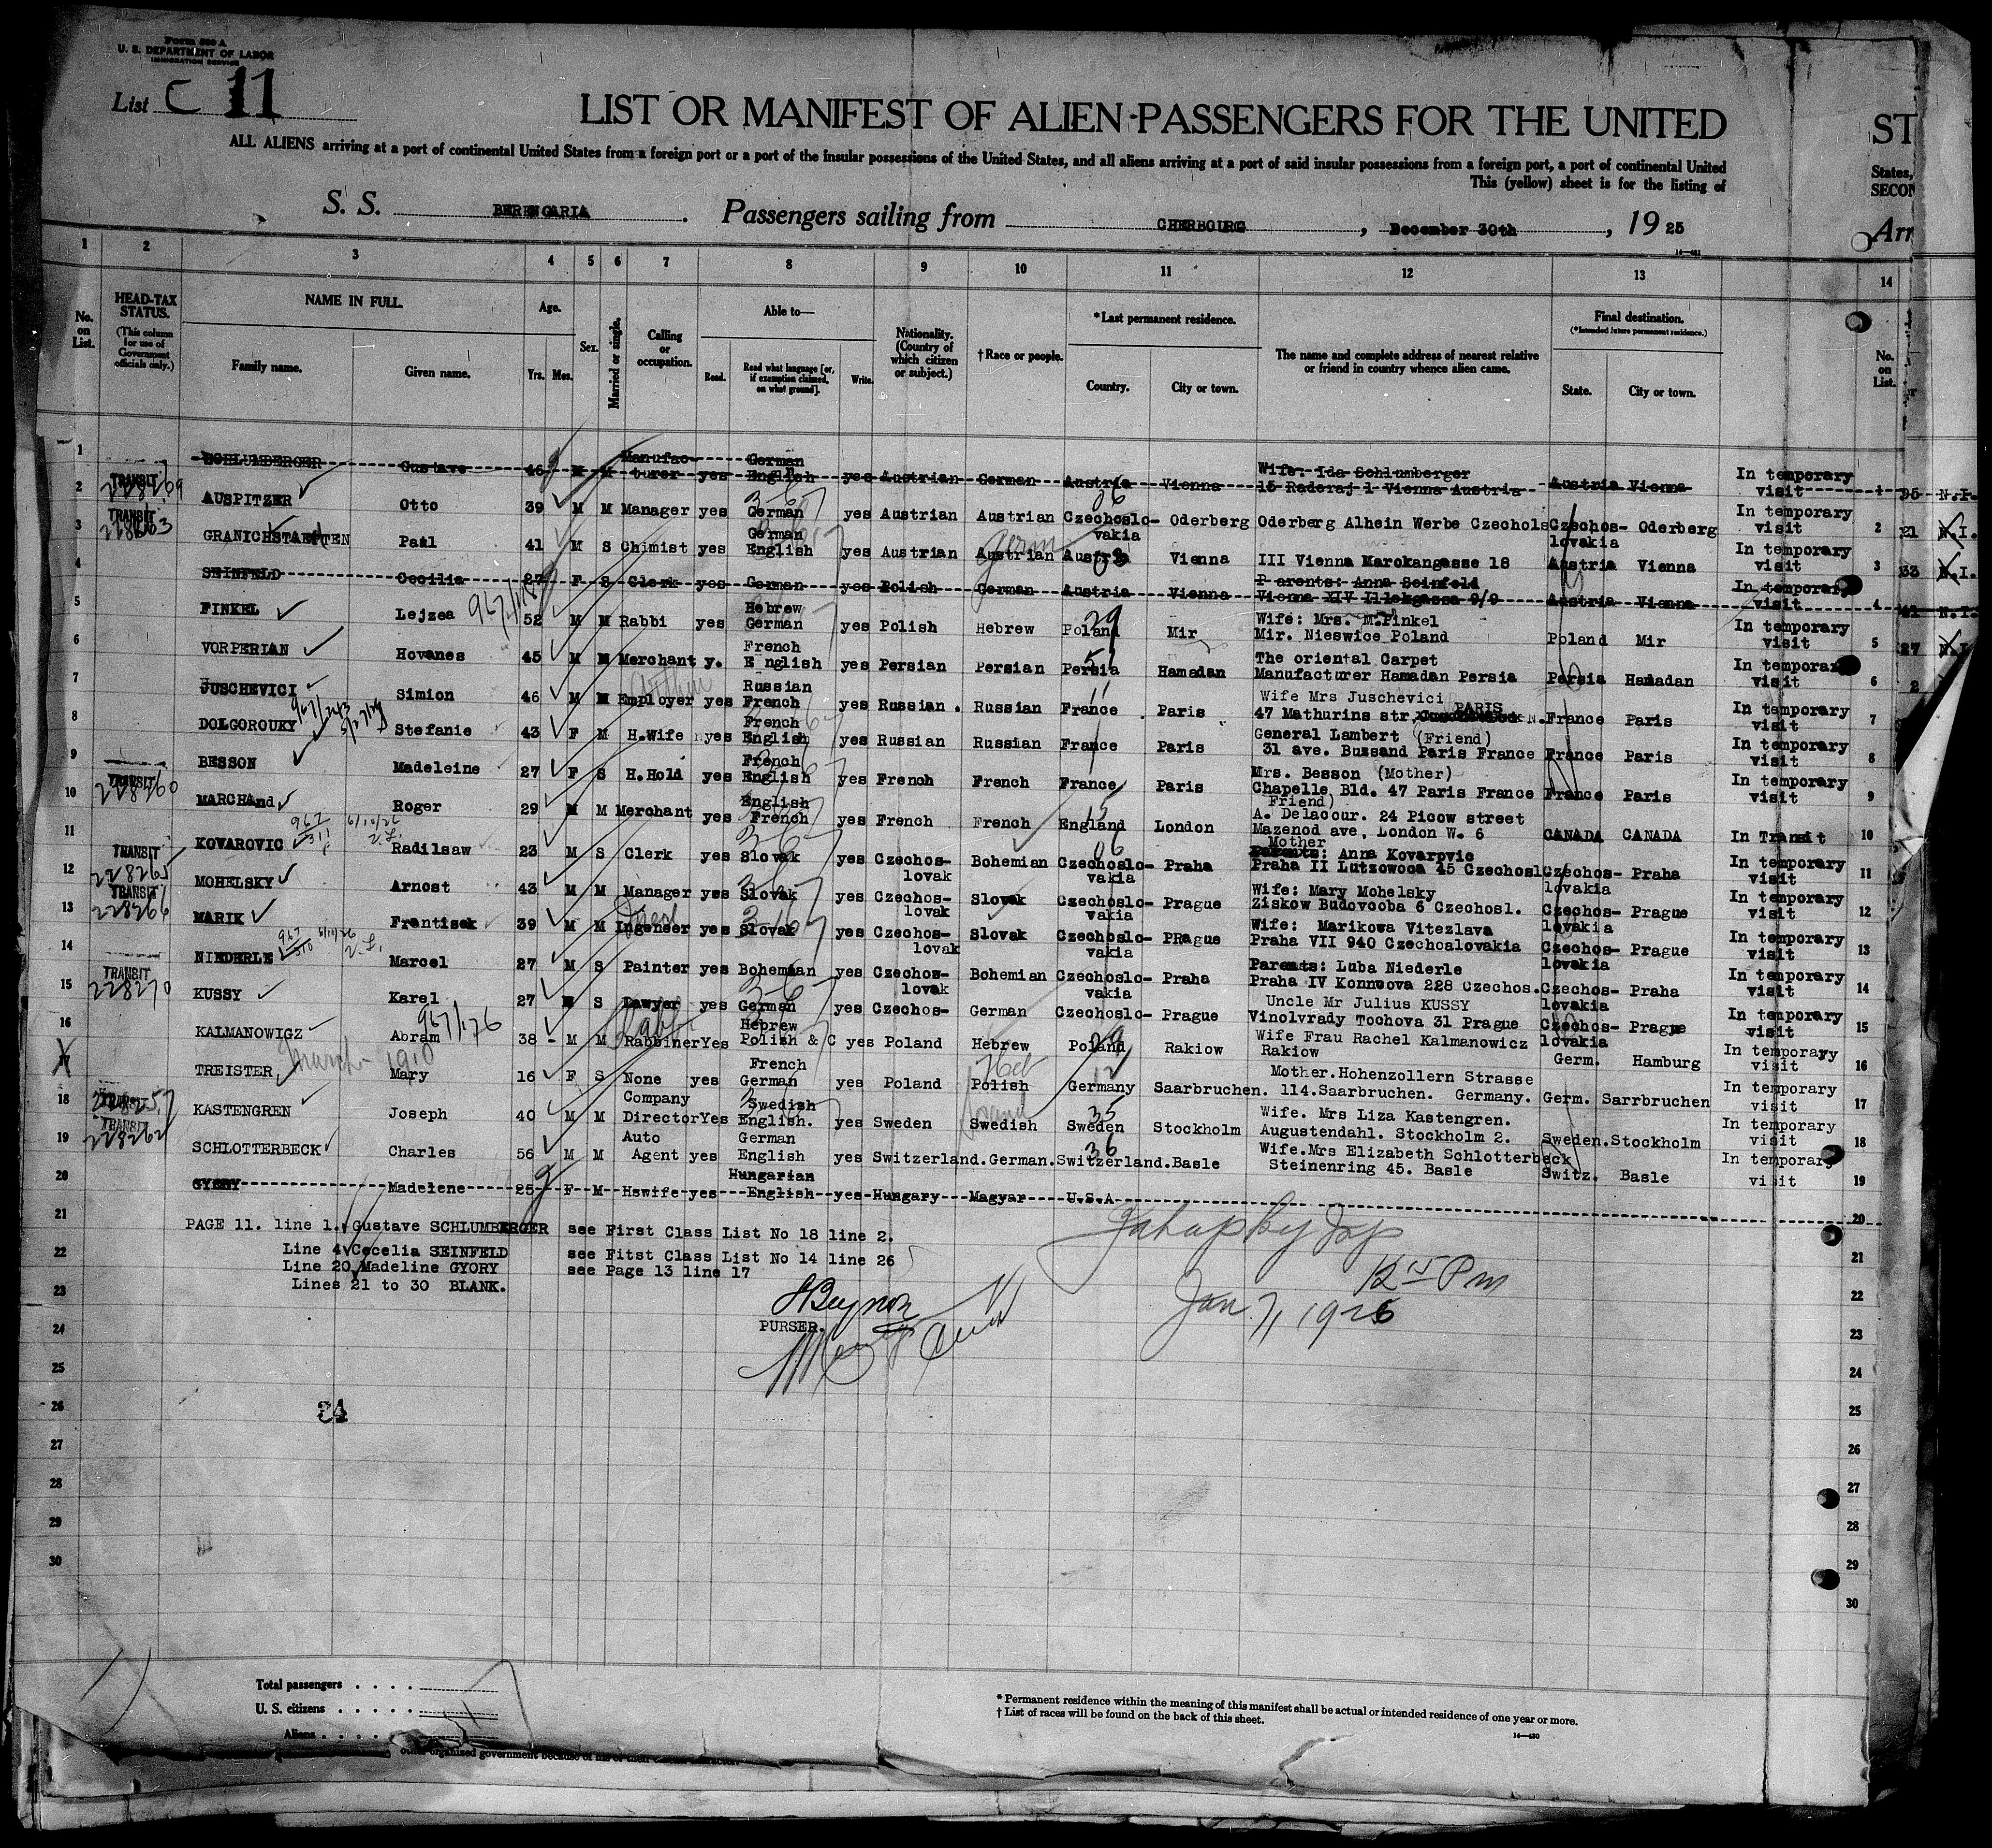 Form 500 A
U. S. DEPARTMENT OF LABOR
IMMIGRATION SERVICE
List C 11
LIST OR MANIFEST OF ALIEN PASSENGERS FOR THE UNITED ST
ALL ALIENS arriving at a port of continental United States from a foreign port or a port of the insular possessions of the United States, and all aliens arriving at a port of said insular possessions from a foreign port, a port of continental United States,
This (yellow) sheet is for the listing of SECON
S. S. BERENGARIA. Passengers sailing from CHERBOURG, December 30th, 1925 Arr
14—431
1 2 3 4 5 6 7 8 9 10 11 12 13 14
No. on List.
HEAD-TAX STATUS. (This column for use of Government officials only.)
NAME IN FULL.
Family name. Given name.
Age. Yrs. Mos.
Sex.
Married or single.
Calling or occupation.
Able to—
Read. Read what language [or, if exemption claimed, on what ground]. Write.
Nationality. (Country of which citizen or subject.)
†Race or people.
*Last permanent residence.
Country. City or town.
The name and complete address of nearest relative or friend in country whence alien came.
Final destination. (*Intended future permanent residence.)
State. City or town.
No. on List.
1 SCHLUMBERGER Gustave 46 M M Manufacturer yes German English yes Austrian German Austria Vienna Wife: Ida Schlumberger 15 Vienna Austria Austria Vienna In temporary visit 1 N.I.
2 TRANSIT 228269 AUSPITZER Otto 39 M M Manager yes German yes Austrian Austrian Czechoslo-vakia 06 Oderberg Oderberg Alhein Werbe Czechosl Czechos-lovakia Oderberg In temporary visit 2 21 N.I.
3 TRANSIT 228263 GRANICHSTAEDTEN Paul 41 M S Chimist yes German English yes Austrian Austrian Germ Austria 03 Vienna III Vienna Marokangasse 18 Austria Vienna In temporary visit 3 33 N.I.
4 SEINFELD Cecilia 27 F S Clerk yes German yes Polish German Austria Vienna Parents: Anna Seinfeld Vienna XIV Illekgasse 9/9 Austria Vienna In temporary visit 4 41 N.I.
5 FINKEL Lejzea 52 M M Rabbi yes Hebrew German yes Polish Hebrew Poland 29 Mir Wife: Mrs. M.Finkel Mir. Nieswice Poland Poland Mir In temporary visit 5 27 N.I.
6 VORPERIAN Hovanes 45 M M Merchant y. French E nglish yes Persian Persian Persia Hamadan The oriental Carpet Manufacturer Hamadan Persia Persia Hamadan In temporary visit 6 2
7 JUSCHEVICI Simion 46 M M Employer yes Russian French yes Russian. Russian France 11 Paris Wife Mrs Juschevici 47 Mathurins str, PARIS France Paris In temporary visit 7
8 DOLGOROUKY Stefanie 43 F M H.Wife yes French English yes Russian Russian France Paris General Lambert (Friend) 31 ave. Buzsand Paris France France Paris In temporary visit 8
9 BESSON Madeleine 27 F S H.Hold yes French English yes French French France Paris Mrs. Besson (Mother) Chapelle Bld. 47 Paris France France Paris In temporary visit 9
10 TRANSIT 228260 MARCHAnd Roger 29 M M Merchant yes English French yes French French England 15 London Friend) A. Delacour. 24 Picow street Mazenod ave, London W. 6 CANADA CANADA In Transit 10
11 KOVAROVIC 967/311 6/10/26 Radilsaw 23 M S Clerk yes Slovak yes Czechos-lovak Bohemian Czechoslo-vakia 06 Praha Mother Parents: Anna Kovarovic Praha II Lutzowoca 45 Czechosl Czechos-lovakia Praha In temporary visit 11
12 TRANSIT 228265 MOHELSKY Arnost 43 M M Manager yes Slovak yes Czechos-lovak Slovak Czechoslo-vakia Prague Wife: Mary Mohelsky Ziskow Budovcoba 6 Czechosl. Czechos-lovakia Prague In temporary visit 12
13 TRANSIT 228266 MARIK Frantisek 39 M M Ingeneer yes Slovak yes Czechos-lovak Slovak Czechoslo-vakia PRague Wife: Marikowa Vitezlava Praha VII 940 Czechoslovakia Czechos-lovakia Prague In temporary visit 13
14 NIEDERLE 967/310 6/10/26 Marcel 27 M S Painter yes Bohemian yes Czechos-lovak Bohemian Czechoslo-vakia Praha Parents: Luba Niederle Praha IV Konnuova 228 Czechos. Czechos-lovakia Praha In temporary visit 14
15 TRANSIT 228270 KUSSY Karel 27 M S Lawyer yes German yes Czechos- German Czechoslo- Prague Uncle Mr Julius KUSSY Vinolvrady Tochova 31 Prague Czechos-lovakia Prague In temporary visit 15
16 KALMANOWIGZ Abram 967/176 38 - M M Rabbi RabbinerYes Hebrew Polish & C yes Poland Hebrew Poland 29 Rakiow Wife Frau Rachel Kalmanowicz Rakiow Germ. Hamburg In temporary visit 16
X 17 TREISTER Mary 16 F S None yes French German yes Poland Polish Heb Germany 12 Saarbruchen. Mother.Hohenzollern Strasse 114.Saarbruchen. Germany. Germ. Sarrbruchen In temporary visit 17
18 TRANSIT 228257 KASTENGREN Joseph 40 M M Company DirectorYes Swedish English. yes Sweden Swedish Scand Sweden 35 Stockholm Wife. Mrs Liza Kastengren. Augustendahl. Stockholm 2. Sweden. Stockholm In temporary visit 18
19 TRANSIT 228262 SCHLOTTERBECK Charles 56 M M Auto Agent yes German English yes Switzerland. German. Switzerland. 36 Basle Wife.Mrs Elizabeth Schlotterbeck Steinenring 45. Basle Switz. Basle In temporary visit 19
20 GYORY Madelene 25 F M Hswife yes Hungarian English yes Hungary Magyar U.S.A 20
21 PAGE 11. line 1. Gustave SCHLUMBERGER see First Class List No 18 line 2. 21
22 Line 4 Cecelia SEINFELD see Fitst Class List No 14 line 26 22
Line 20 Madeline GYORY see Page 13 line 17
23 Lines 21 to 30 BLANK. 23
12 15 Pm
Jan 7, 1926
PURSER.
24 24
25 25
26 34 26
27 27
28 28
29 29
30 30
Total passengers . . . .
U. S. citizens . . . . .
Aliens . . . .
17
* Permanent residence within the meaning of this manifest shall be actual or intended residence of one year or more.
† List of races will be found on the back of this sheet.
14—430